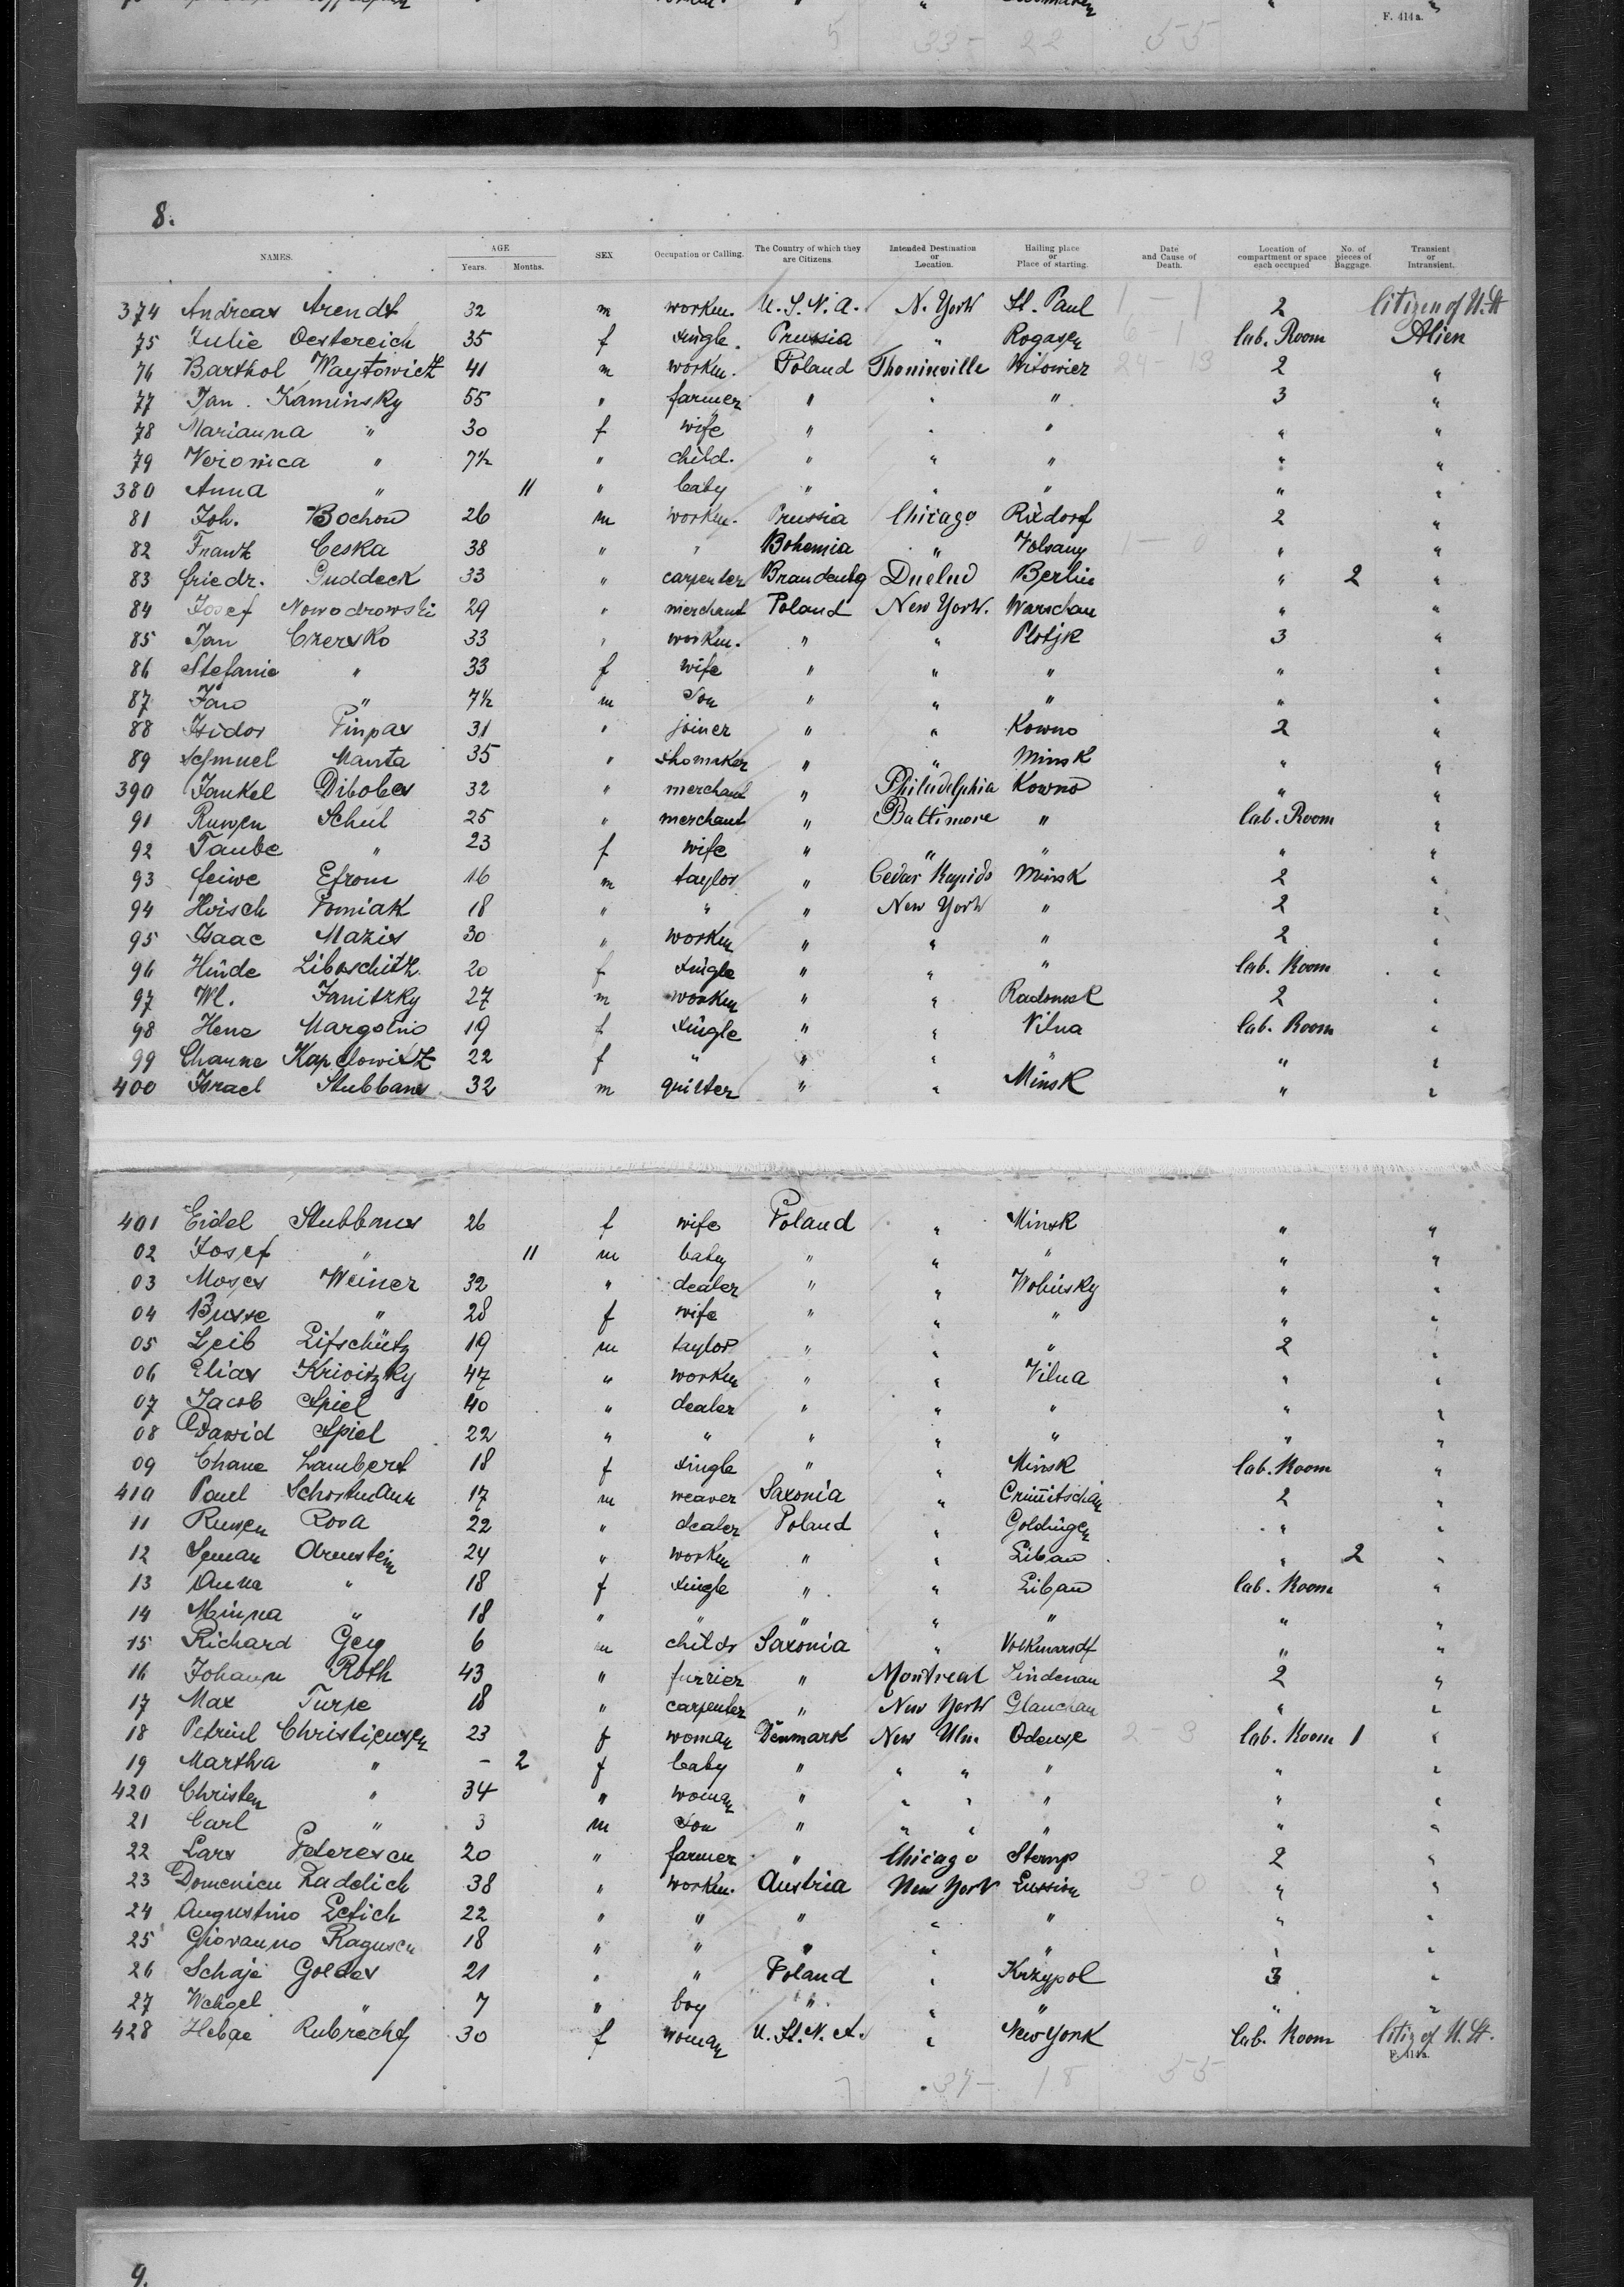 F. 414a.
5 33- 22 55
8.
NAMES. AGE Years. Months. SEX Occupation or Calling. The Country of which they are Citizens. Intended Destination or Location. Hailing place or Place of starting. Date and Cause of Death. Location of compartment or space each occupied No. of pieces of Baggage. Transient or Intransient.
374 Andreas Arendt 32 m workm. U.S.N.A. N. York St. Paul 1 — 1 2 Citizen of U.St
75 Julie Oestereich 35 f single. Prussia " Rogasen 6 1 Cab. Room Alien
76 Barthol Waytowicz 41 m workm. Poland Thoninville Witowiez 24 - 13 2 "
77 Jan. Kaminsky 55 " farmer " " " 3 "
78 Marianna " 30 f wife " " " " "
79 Veronica " 7½ " child. " " " " "
380 Anna " 11 " baby " " " " "
81 Joh. Bochow 26 m workm. Prussia Chicago Rixdorf 2 "
82 Frantz Ceska 38 " " Bohemia " Volsany 1 — 0 " "
83 friedr. Guddeck 33 " carpenter Brandenbg Duelud Berlin " 2 "
84 Josef Nowodrowski 29 " merchant Poland New York. Warschau " "
85 Jan Czersko 33 " workm. " " Plotjk 3 "
86 Stefanie " 33 f wife " " " " "
87 Jan " 7½ m Son " " " " "
88 Isidor Pinpas 31 " joiner " " Kowno 2 "
89 Schmuel Manta 35 " shomaker " " Minsk " "
390 Jankel Dibobes 32 " merchant " Philadelphia Kowno " "
91 Ruwen Schul 25 " merchant " Baltimore " Cab. Room "
92 Taube " 23 f wife " " " " "
93 feiwe Efrom 16 m taylor " Cedar Rapids Minsk 2 "
94 Hirsch Pomiak 18 " " " New York " 2 "
95 Isaac Mazis 30 " workm " " " 2 "
96 Hinde Liboschitz 20 f single " " " Cab. Room "
97 Wl. Janitzky 27 m workm " " Radomsk 2 "
98 Hene Margolno 19 f single " " Vilna Cab. Room "
99 Channe Kapelowitz 22 f " " " " " "
400 Israel Stubbans 32 m quilter " " Minsk " "
401 Eidel Stubbens 26 f wife Poland " Minsk " "
02 Josef " 11 m baby " " " " "
03 Moses Weiner 32 " dealer " " Wolinsky " "
04 Busse " 28 f wife " " " " "
05 Leib Lifschütz 19 m taylor " " " 2 "
06 Elias Krivitzky 47 " workm " " Vilna " "
07 Jacob Spiel 40 " dealer " " " " "
08 Dawid Spiel 22 " " " " " " "
09 Chane Lambert 18 f single " " Minsk Cab. Room "
410 Paul Schortmann 17 m weaver Saxonia " Crimitschau 2 "
11 Ruwen Rosa 22 " dealer Poland " Goldingen " "
12 Seman Orenstein 24 " workm " " Libau " 2 "
13 Anna " 18 f single " " Libau Cab. Room "
14 Minna " 18 " " " " " " "
15 Richard Gey 6 m childr Saxonia " Volkmarsdf " "
16 Johann Roth 43 " furrier " Montreal Lindenau 2 "
17 Max Turpe 18 " carpenter " New York Glauchau " "
18 Petrine Christiensen 23 f woman Denmark New Ulm Odense 2 - 3 Cab. Room 1 "
19 Martha " - 2 f baby " " " " " "
420 Christen " 34 " woman " " " " " "
21 Carl " 3 m Son " " " " " "
22 Lars Petersen 20 " farmer " Chicago Stemp 2 "
23 Domenicu Radolich 38 " workm. Austria New York Lussin 3 - 0 " "
24 Augustino Letich 22 " " " " " " "
25 Giovanno Ragusen 18 " " " " " " "
26 Schaje Goldes 21 " " Poland " Krzypol 3 "
27 " 7 " boy " " " " "
428 Rubrecht 30 f woman U.St.N.A. " New York Cab. Room Citiz of U.St.
F. 414a.
7 37- 18 55
9.